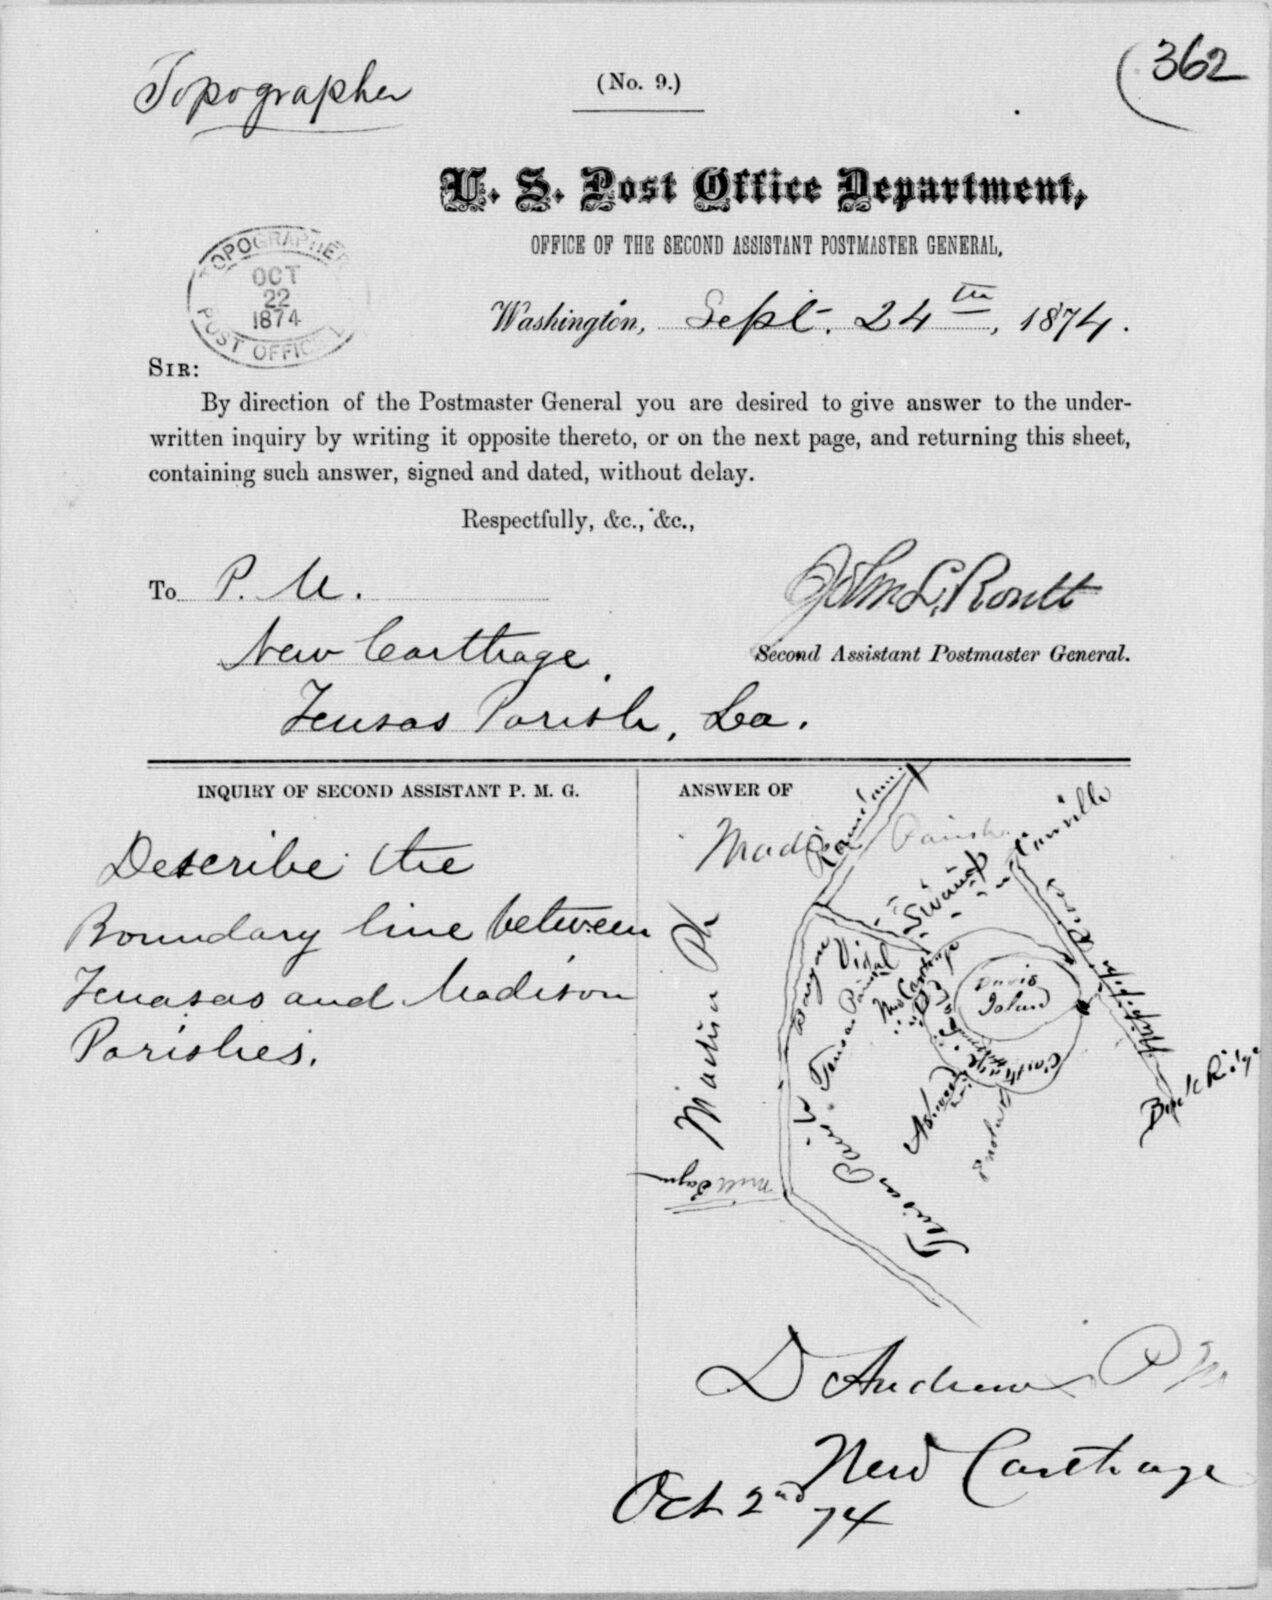 Topographer
(No. 9.)
362
U. S. Post Office Department,
OFFICE OF THE SECOND ASSISTANT POSTMASTER GENERAL,
TOPOGRAPHER
OCT
22
1874
POST OFFICE
Washington, Sept. 24th, 1874.
SIR:
By direction of the Postmaster General you are desired to give answer to the under-
written inquiry by writing it opposite thereto, or on the next page, and returning this sheet,
containing such answer, signed and dated, without delay.
Respectfully, &c., &c.,
To P. M.
John L. Routt
New Carthage,
Second Assistant Postmaster General.
Tensas Parish, La.
INQUIRY OF SECOND ASSISTANT P. M. G.
ANSWER OF
Describe the
Boundary line between
Tenasas and Madison
Parishes.
Parish
Swamp
Vidal
Davis
Island
Ashwood
Mill Bayou
D Andrews P M
New Carthage
Oct 2nd 74